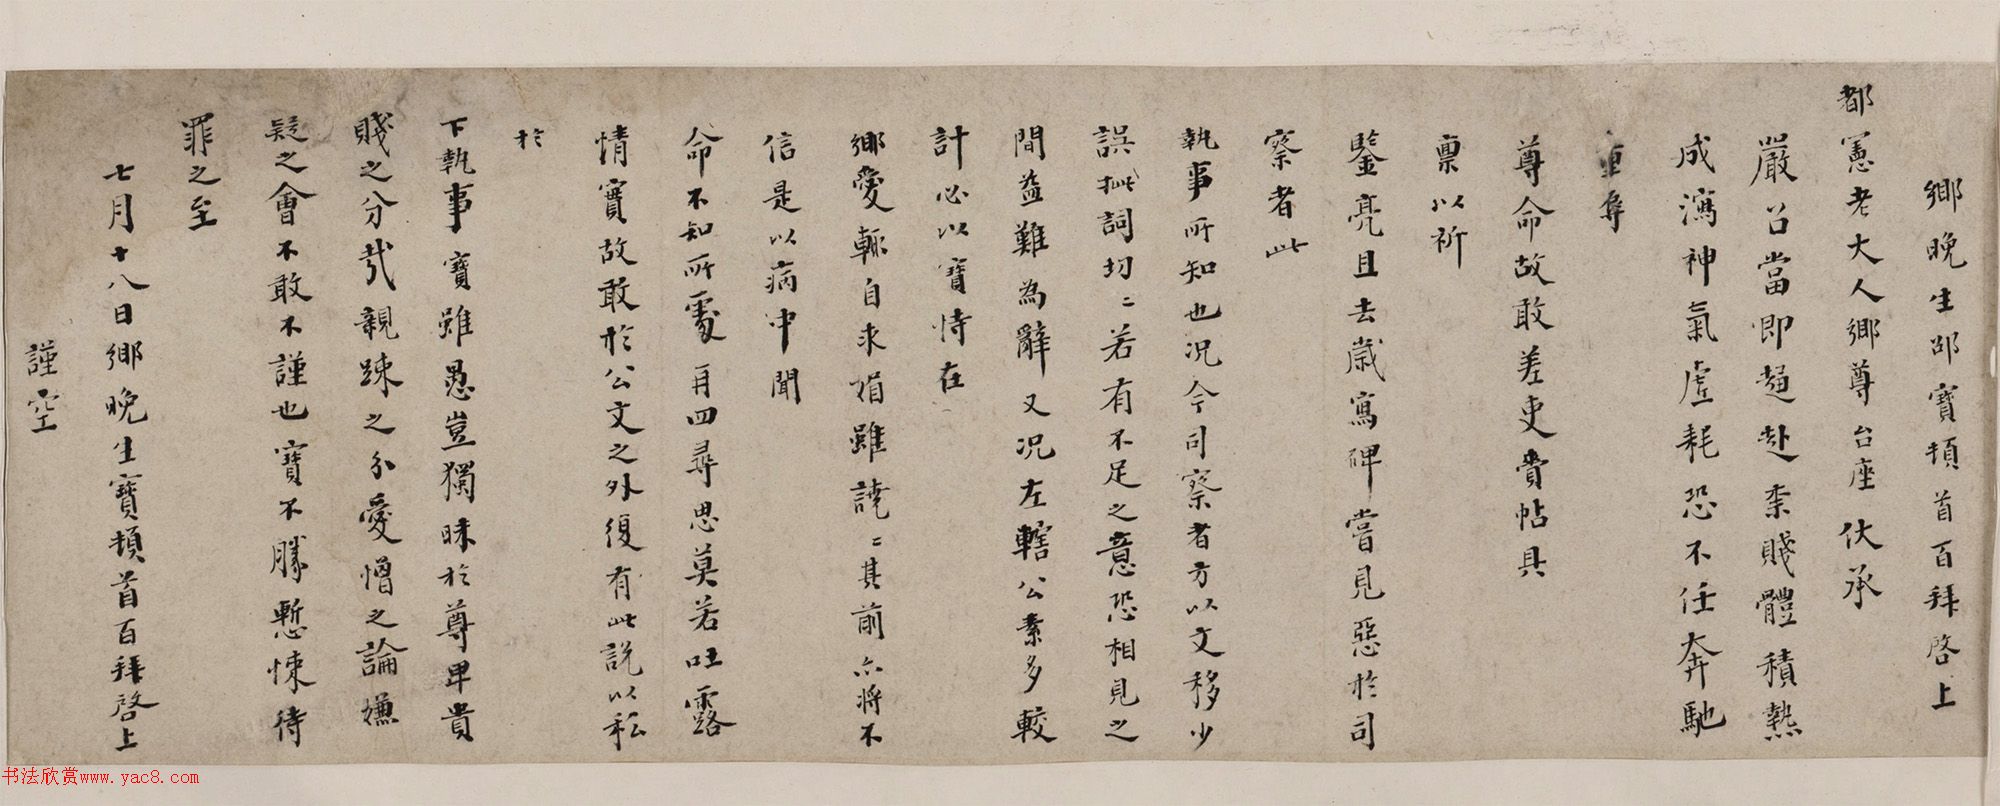 鄉晚生邵寶頓首百拜啓上
都憲老大人鄉尊台座伏承
嚴召當即趨赴柰賤體積熱
成瀉神氣虛耗恐不任奔馳
重辱
尊命故敢差吏賫帖具
禀以祈
鑒亮且去歲寫碑嘗見惡於司
察者此
執事所知也况今司察者方以文移少
誤摭詞切〻若有不足之意恐相見之
間益難為辭又况左轄公素多較
計必以寶恃在
鄉愛輒自求損雖譊〻其前亦將不
信是以病中聞
命不知所處再四尋思莫若吐露
情實故敢於公文之外復有此説以私
於
下執事寶雖愚豈獨昧於尊卑貴
賤之分哉親踈之分愛憎之論嫌
疑之會不敢不謹也寶不勝慙悚待
罪之至
七月十八日鄉晚生寶頓首百拜啓上
謹空
书法欣赏www.yac8.com